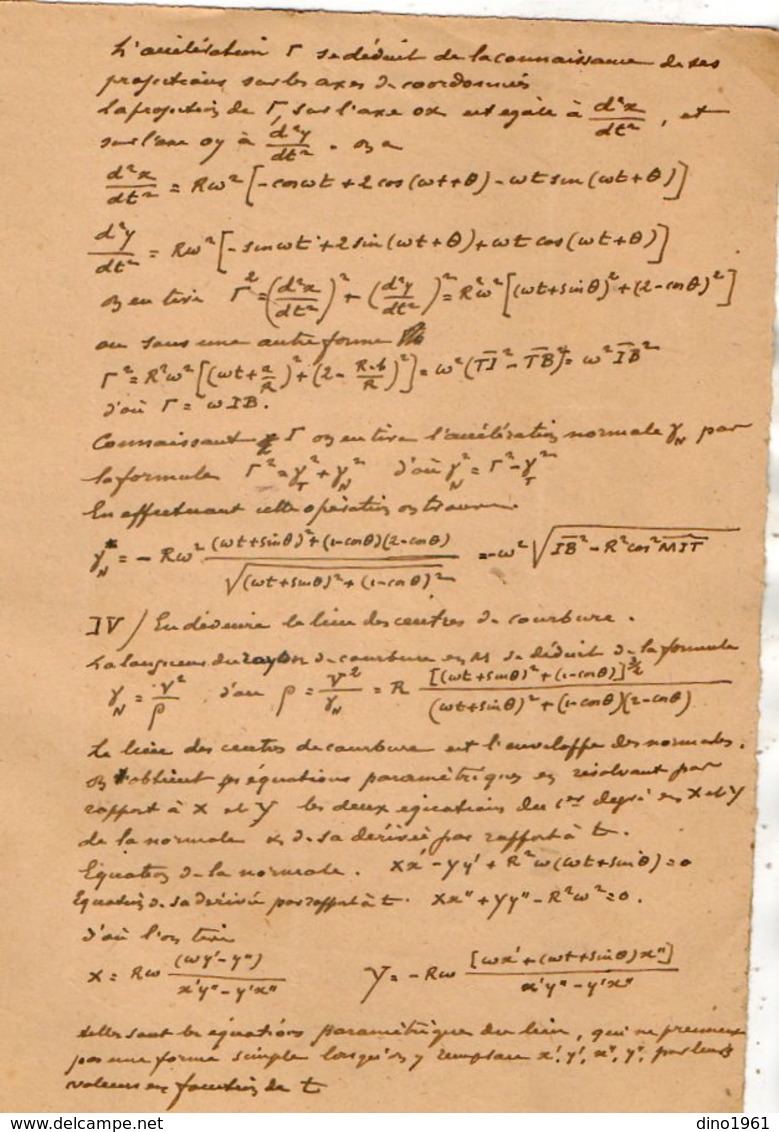 L'accélération Γ se déduit de la connaissance de ses
projections sur les axes de coordonnées
La projection de Γ sur l'axe ox est egale à d²x/dt², et
sur l'axe oy à d²y/dt². on a
d²x/dt² = Rω² [-cosωt + 2cos(ωt+θ) - ωt sin(ωt+θ)]
d²y/dt² = Rω² [-sinωt + 2sin(ωt+θ) + ωt cos(ωt+θ)]
on en tire Γ² = (d²x/dt²)² + (d²y/dt²)² = R²ω² [(ωt+sinθ)² + (2-cosθ)²]
ou sous une autre forme
Γ² = R²ω² [(ωt + a/R)² + (2 - R-b/R)²] = ω² (TI² - TB²) = ω² IB²
d'où Γ = ωIB.
Connaissant Γ on en tire l'accélération normale γN par
la formule Γ² = γT² + γN² d'où γN² = Γ² - γT²
En effectuant cette opération on trouve.
γN = - Rω² (ωt+sinθ)² + (1-cosθ)(2-cosθ) / √(ωt+sinθ)² + (1-cosθ)² = -ω² √IB² - R²cos²MIT
IV) En déduire le lieu des centres de courbure.
La longueur du rayon de courbure en M se déduit de la formule
γN = v²/ρ d'où ρ = v²/γN = R [(ωt+sinθ)² + (1-cosθ)]^3/2 / (ωt+sinθ)² + (1-cosθ)(2-cosθ)
Le lieu des centres de courbure est l'enveloppe des normales.
on obtient les équations paramétriques en résolvant par
rapport à X et Y les deux equations du 1er degré en X et Y
de la normale & de sa dérivée par rapport à t.
Equation de la normale. Xx' - Yy' + R²ω(ωt+sinθ) = 0
Equation de sa dérivée par rapport à t. Xx" + Yy" - R²ω² = 0.
d'où l'on tire
X = Rω (ωy' - y") / x'y" - y'x" Y = - Rω [ωx' + (ωt+sinθ)x"] / x'y" - y'x"
telles sont les équations paramétriques du lieu, qui ne prennent
pas une forme simple lorsqu'on y remplace x', y', x", y", par leurs
valeurs en fonction de t
www.delcampe.net
dino1961